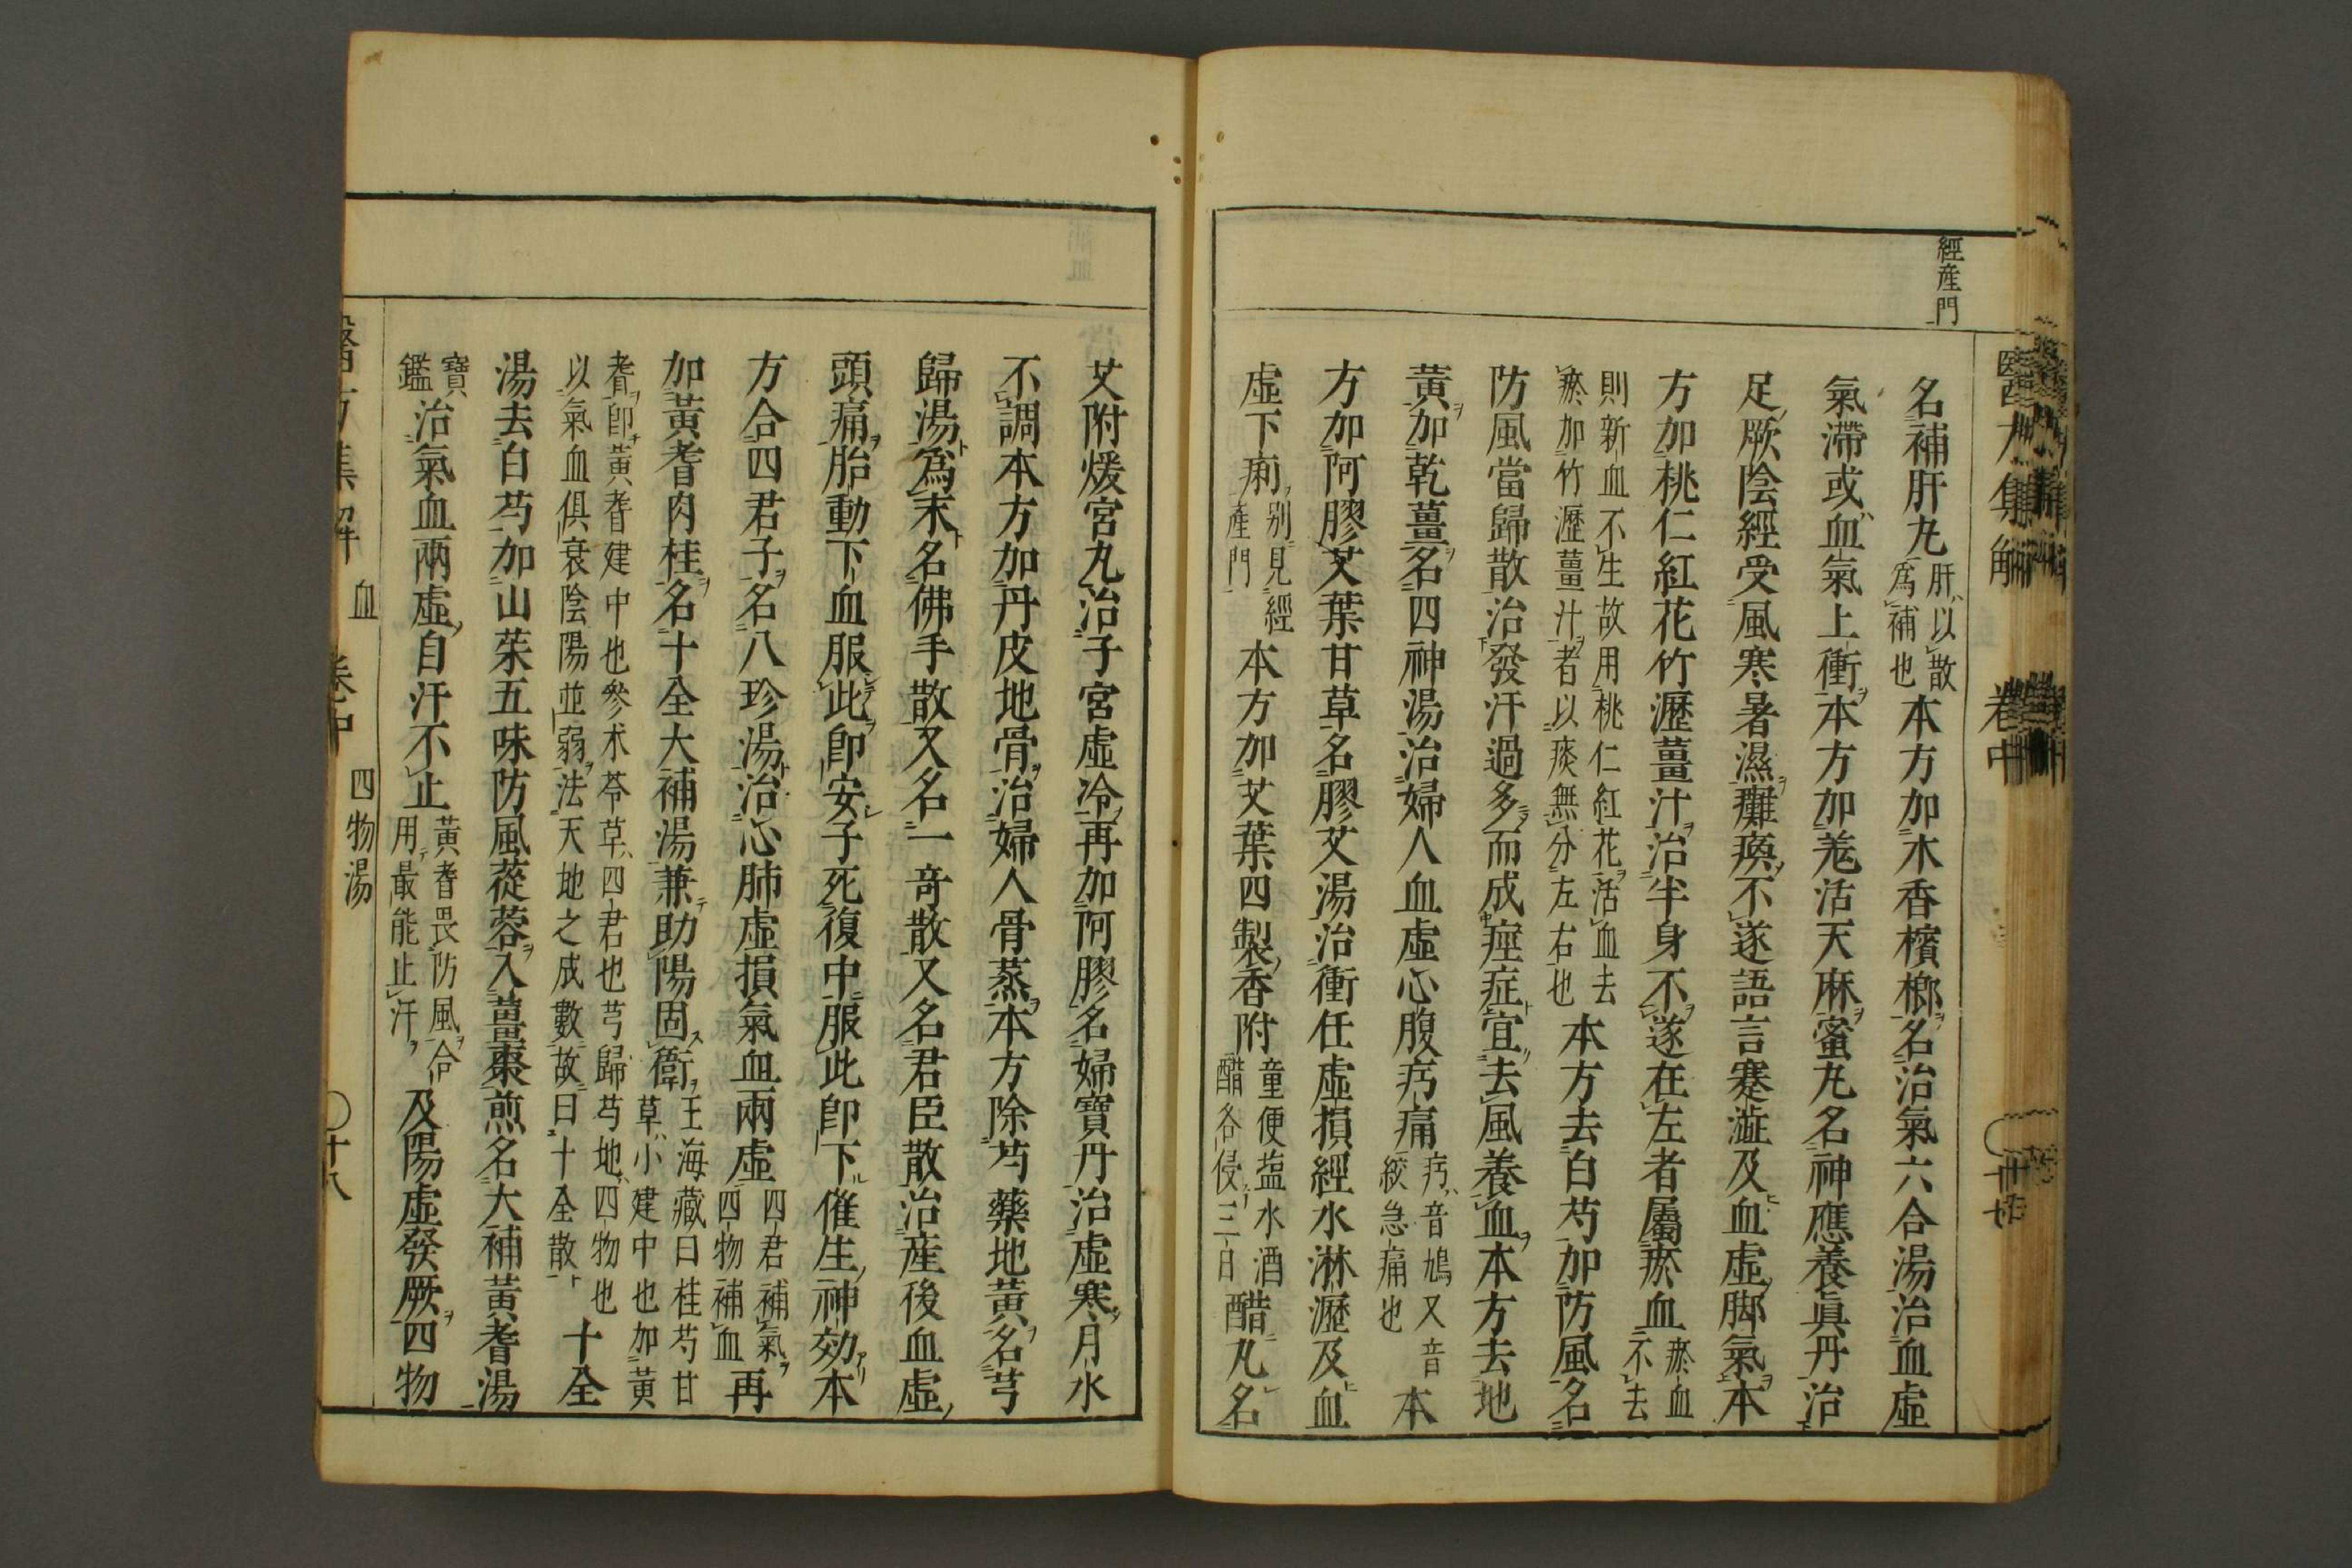 經産門
醫方集解 卷中
名補肝丸肝以散爲補也本方加木香檳榔名治氣六合湯治血虛
氣滯或血氣上衝本方加羗活天麻蜜丸名神應養眞丹治
足厥陰經受風寒暑濕癱瘓不遂語言蹇澁及血虛脚氣本
方加桃仁紅花竹瀝薑汁治半身不遂在左者屬瘀血瘀血不去
則新血不生故用桃仁紅花活血去瘀加竹瀝薑汁者以痰無分左右也本方去白芍加防風名
防風當歸散治發汗過多而成痙症宜去風養血本方去地
黃加乾薑名四神湯治婦人血虛心腹㽱痛㽱音鳩又音絞急痛也本
方加阿膠艾葉甘草名膠艾湯治衝任虛損經水淋瀝及血
虛下痢別見經産門本方加艾葉四製香附童便塩水酒醋各侵三日醋丸名
艾附煖宮丸治子宮虛冷再加阿膠名婦寶丹治虛寒月水
不調本方加丹皮地骨治婦人骨蒸本方除芍藥地黃名芎
歸湯爲末名佛手散又名一竒散又名君臣散治産後血虛
頭痛胎動下血服此卽安子死復中服此卽下催生神効本
方合四君子名八珍湯治心肺虛損氣血兩虛四君補氣四物補血再
加黃耆肉桂名十全大補湯兼助陽固衛王海藏曰桂芍甘草小建中也加黃
耆卽黃耆建中也參朮苓草四君也芎歸芍地四物也以氣血俱衰陰陽並弱法天地之成數故曰十全散十全
湯去白芍加山茱五味防風蓯蓉入薑棗煎名大補黃耆湯
寶鑑治氣血兩虛自汗不止黃耆畏防風合用最能止汗及陽虛發厥四物
醫方集解 血 卷中 四物湯 十八